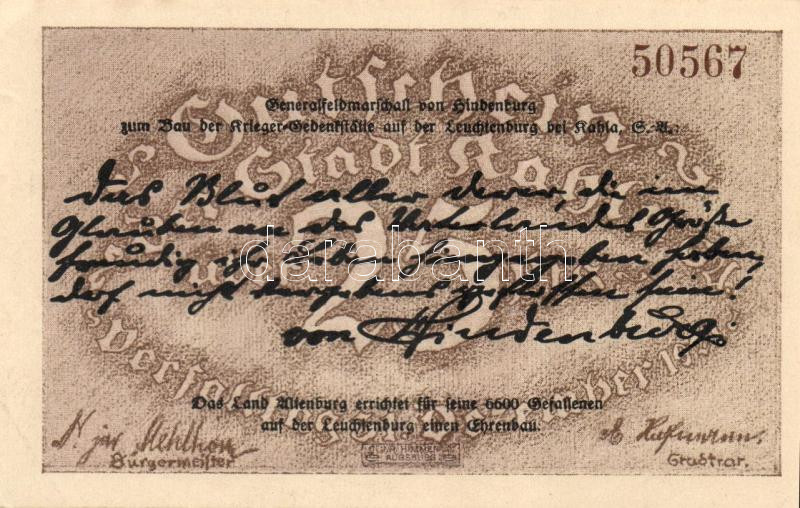 50567
Gutschein
Generalfeldmarschall von Hindenburg
zum Bau der Krieger-Gedenkstätte auf der Leuchtenburg bei Kahla, S.-A.:
Stadt Kahla
Das Blut aller derer, die im
Glauben an des Vaterlandes Größe
freudig ihr Leben hingegeben haben,
darf nicht vergebens geflossen sein!
von Hindenburg
25
darabanth
Das Land Altenburg errichtet für seine 6600 Gefallenen
auf der Leuchtenburg einen Ehrenbau.
Bürgermeister
Stadtrat.